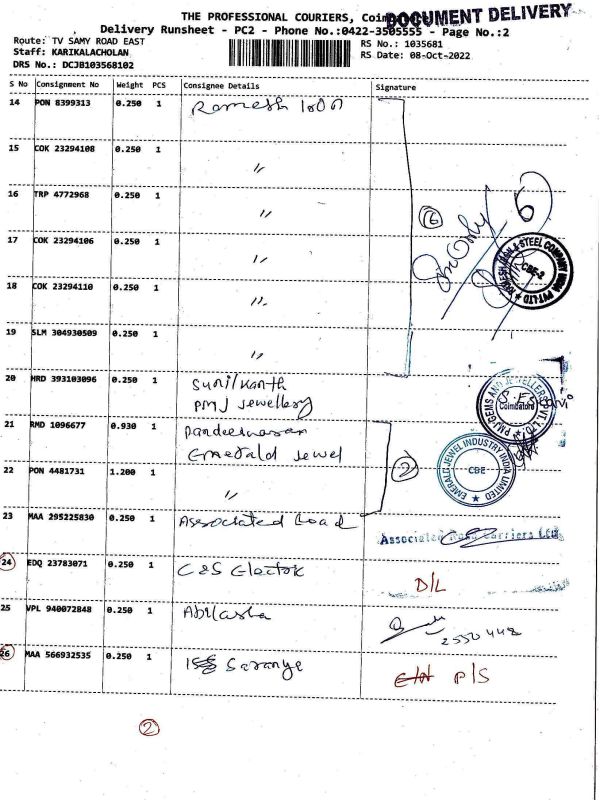 THE PROFESSIONAL COURIERS,
DOCUMENT DELIVERY
Delivery Runsheet - PC2 - Phone No.:0422-3505555 - Page No.:2
Route: TV SAMY ROAD EAST
RS No.: 1035681
Staff: KARIKALACHOLAN
RS Date: 08-Oct-2022
DRS No.: DCJB103568102
S No Consignment No Weight PCS Consignee Details Signature
14 PON 8399313 0.250 1 Ramesh Iron
15 COK 23294108 0.250 1 "
16 TRP 4772968 0.250 1 "
17 COK 23294106 0.250 1 "
18 COK 23294110 0.250 1 "
19 SLM 304930509 0.250 1 "
6
CBE-2
20 HRD 393103096 0.250 1 Sunilkanth
PMJ Jewellery
PMJ-GEMS AND JEWELLERS PVT.LTD
Coimbatore
21 RMD 1096677 0.930 1 Pandeeswaran
Emerald Jewel
22 PON 4481731 1.200 1 "
2
EMERALD JEWEL INDUSTRY INDIA LIMITED
CBE
23 MAA 295225830 0.250 1 Associated Load
Associated Road Carriers Ltd
24 EDQ 23783071 0.250 1 C&S Electok
D/L
25 VPL 940072848 0.250 1 Abilasha
2550448
26 MAA 566932535 0.250 1 Saranye
P/S
2